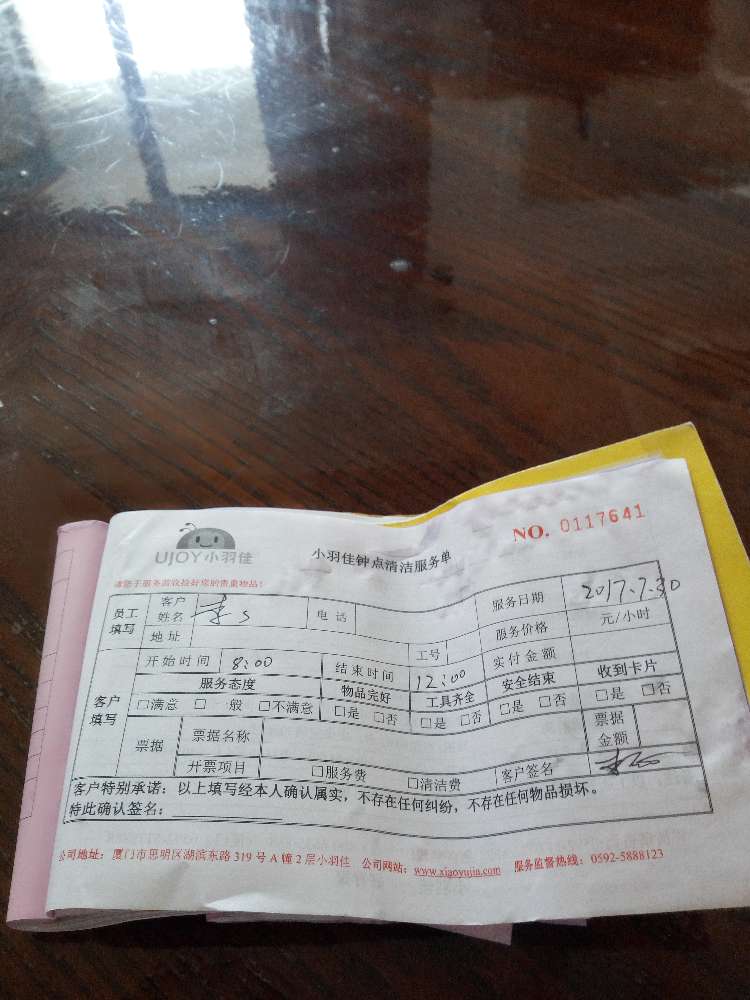 UJOY小羽佳
小羽佳钟点清洁服务单
NO. 0117641
员工填写 客户姓名 李 电话 服务日期 2017.7.30
地址 工号 服务价格 元/小时
客户填写 开始时间 8:00 结束时间 12:00 实付金额
服务态度 物品完好 工具齐全 安全结束 收到卡片
□满意 □一般 □不满意 □是 □否 □是 □否 □是 □否 □是 □否
票据 票据名称 票据金额
开票项目 □服务费 □清洁费 客户签名
客户特别承诺：以上填写经本人确认属实，不存在任何纠纷，不存在任何物品损坏。
特此确认签名：
公司地址：厦门市思明区湖滨东路 319 号 A 幢 2 层小羽佳 公司网站：www.xiaoyujia.com 服务监督热线：0592-5888123